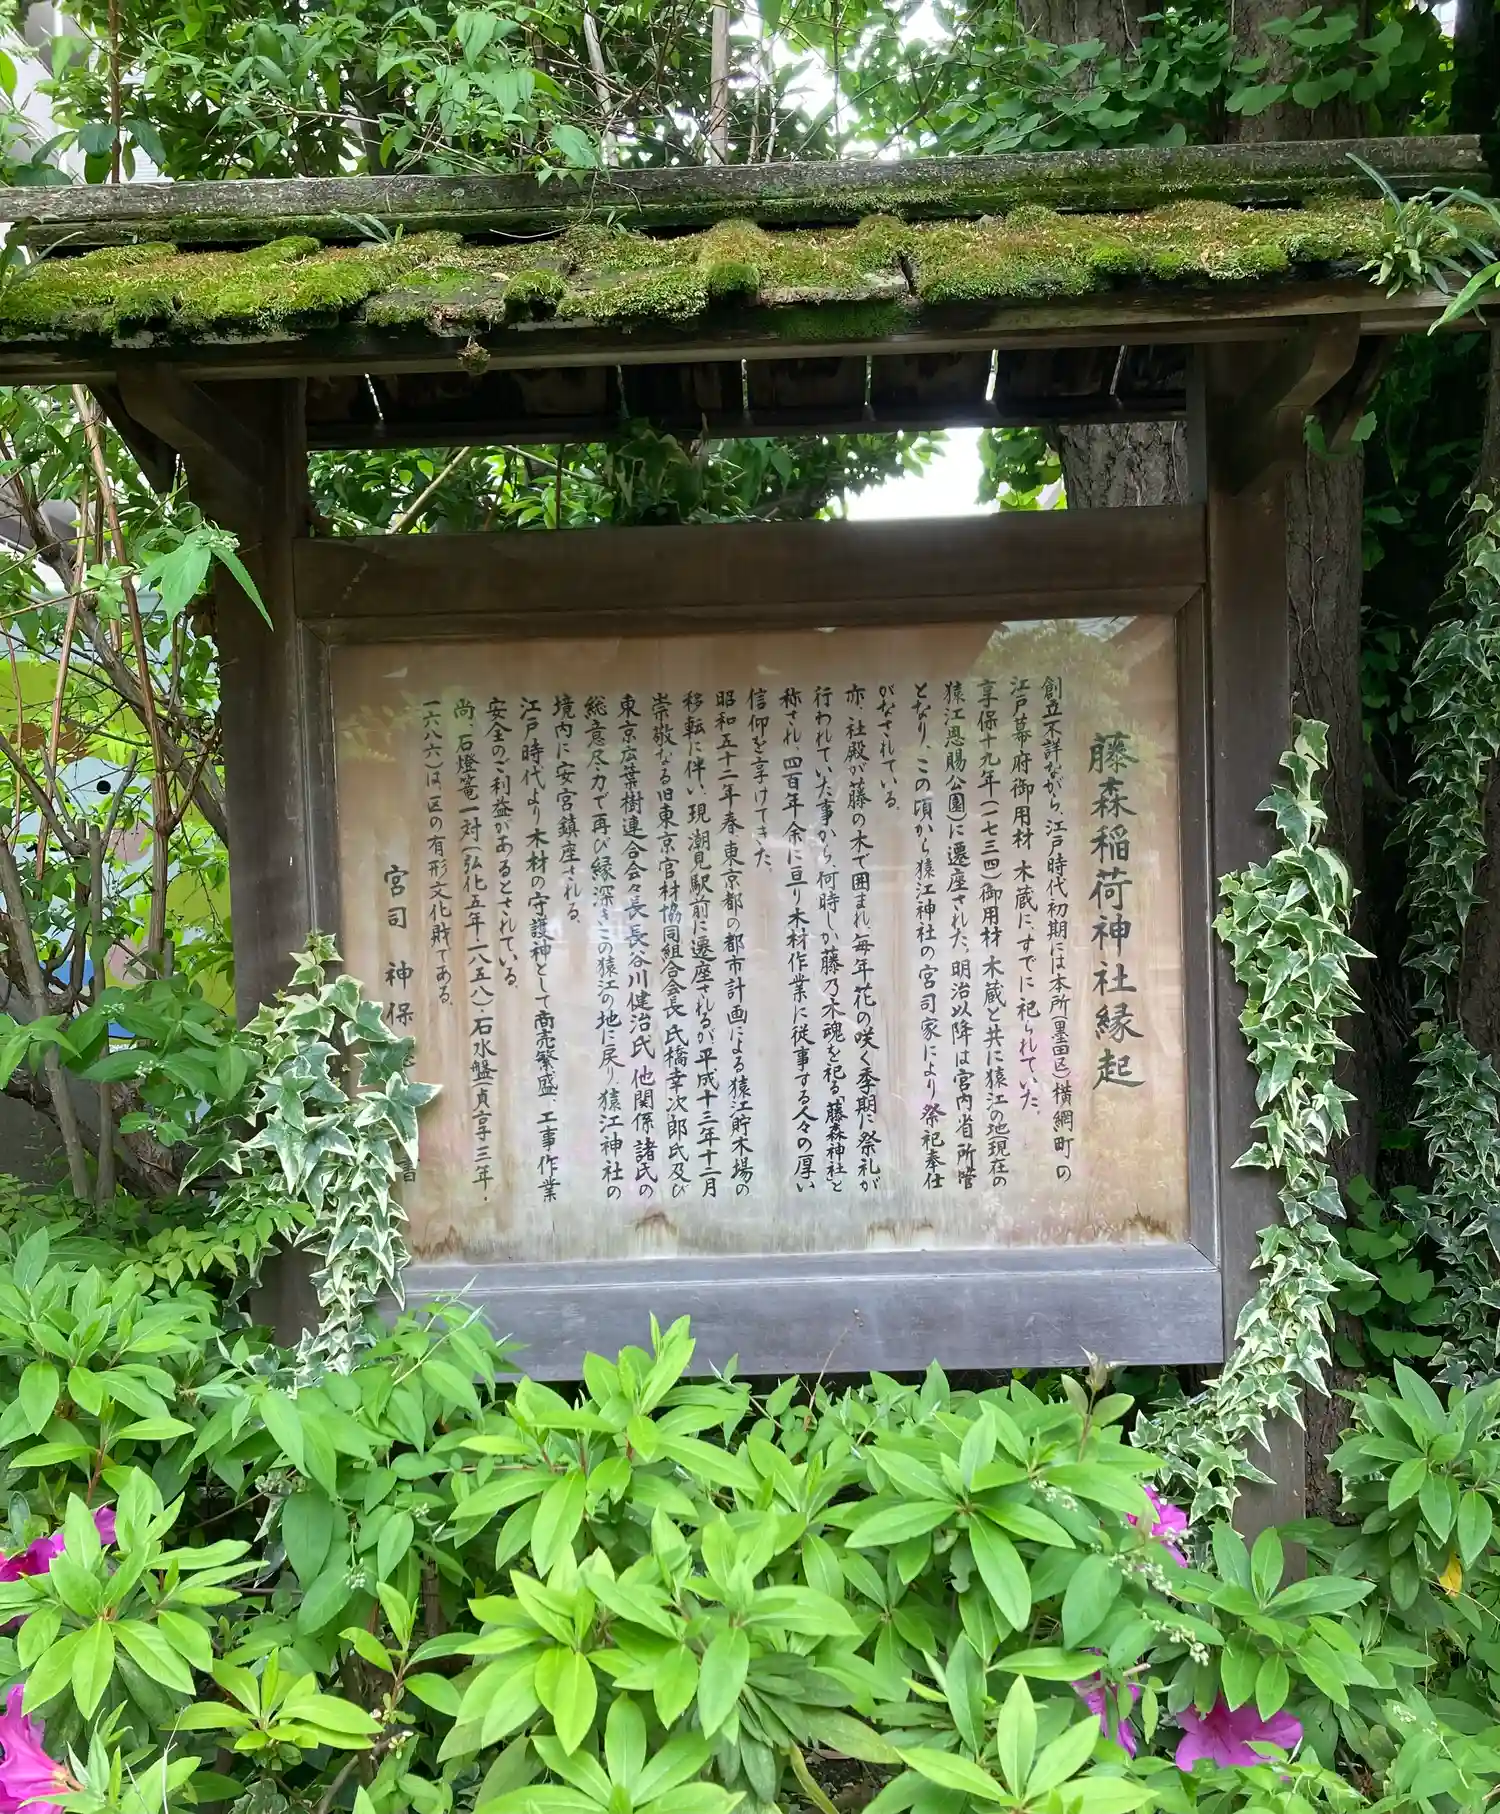 藤森稲荷神社縁起
創立不詳ながら、江戸時代初期には本所(墨田区)横網町の
江戸幕府御用材木蔵にすでに祀られていた。
享保十九年(一七三四)御用材木蔵と共に猿江の地(現在の
猿江恩賜公園)に遷座された。明治以降は宮内省所管
となり、この頃から猿江神社の宮司家により祭祀奉仕
がなされている。
亦、社殿が藤の木で囲まれ、毎年花の咲く季期に祭礼が
行われていた事から、何時しか藤乃木魂を祀る「藤森神社」と
称され、四百年余に亘り木材作業に従事する人々の厚い
信仰を享けてきた。
昭和五十二年春、東京都の都市計画による猿江貯木場の
移転に伴い、現潮見駅前に遷座されるが平成十三年十二月
崇敬なる旧東京官材協同組合会長氏橋幸次郎氏及び
東京広葉樹連合会々長長谷川健治氏他関係諸氏の
総意尽力で再び縁深きこの猿江の地に戻り、猿江神社の
境内に安宮鎮座される。
江戸時代より木材の守護神として商売繁盛、工事作業
安全のご利益があるとされている。
尚、石燈篭一対(弘化五年・一八五八)・石水盤(貞享三年・
一六八六)は、区の有形文化財である。
宮司 神保 書